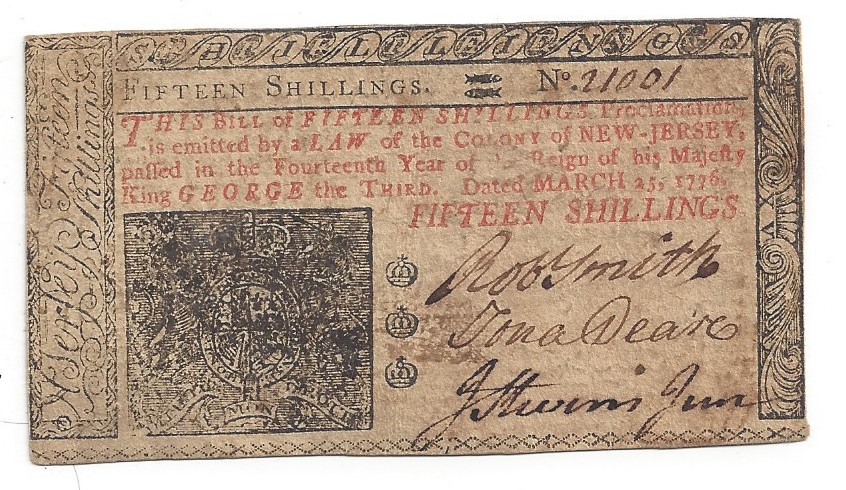 FIFTEEN SHILLINGS. No. 21001
THIS BILL of FIFTEEN SHILLINGS Proclamation,
is emitted by a LAW of the COLONY of NEW-JERSEY,
paſſed in the Fourteenth Year of Reign of his Majeſty
King GEORGE the THIRD. Dated MARCH 25, 1776.
FIFTEEN SHILLINGS
Rob Smith
Jona Deare
J Stevens Jun
Fifteen
Shillings
N Jerſey
DIEU ET
MON